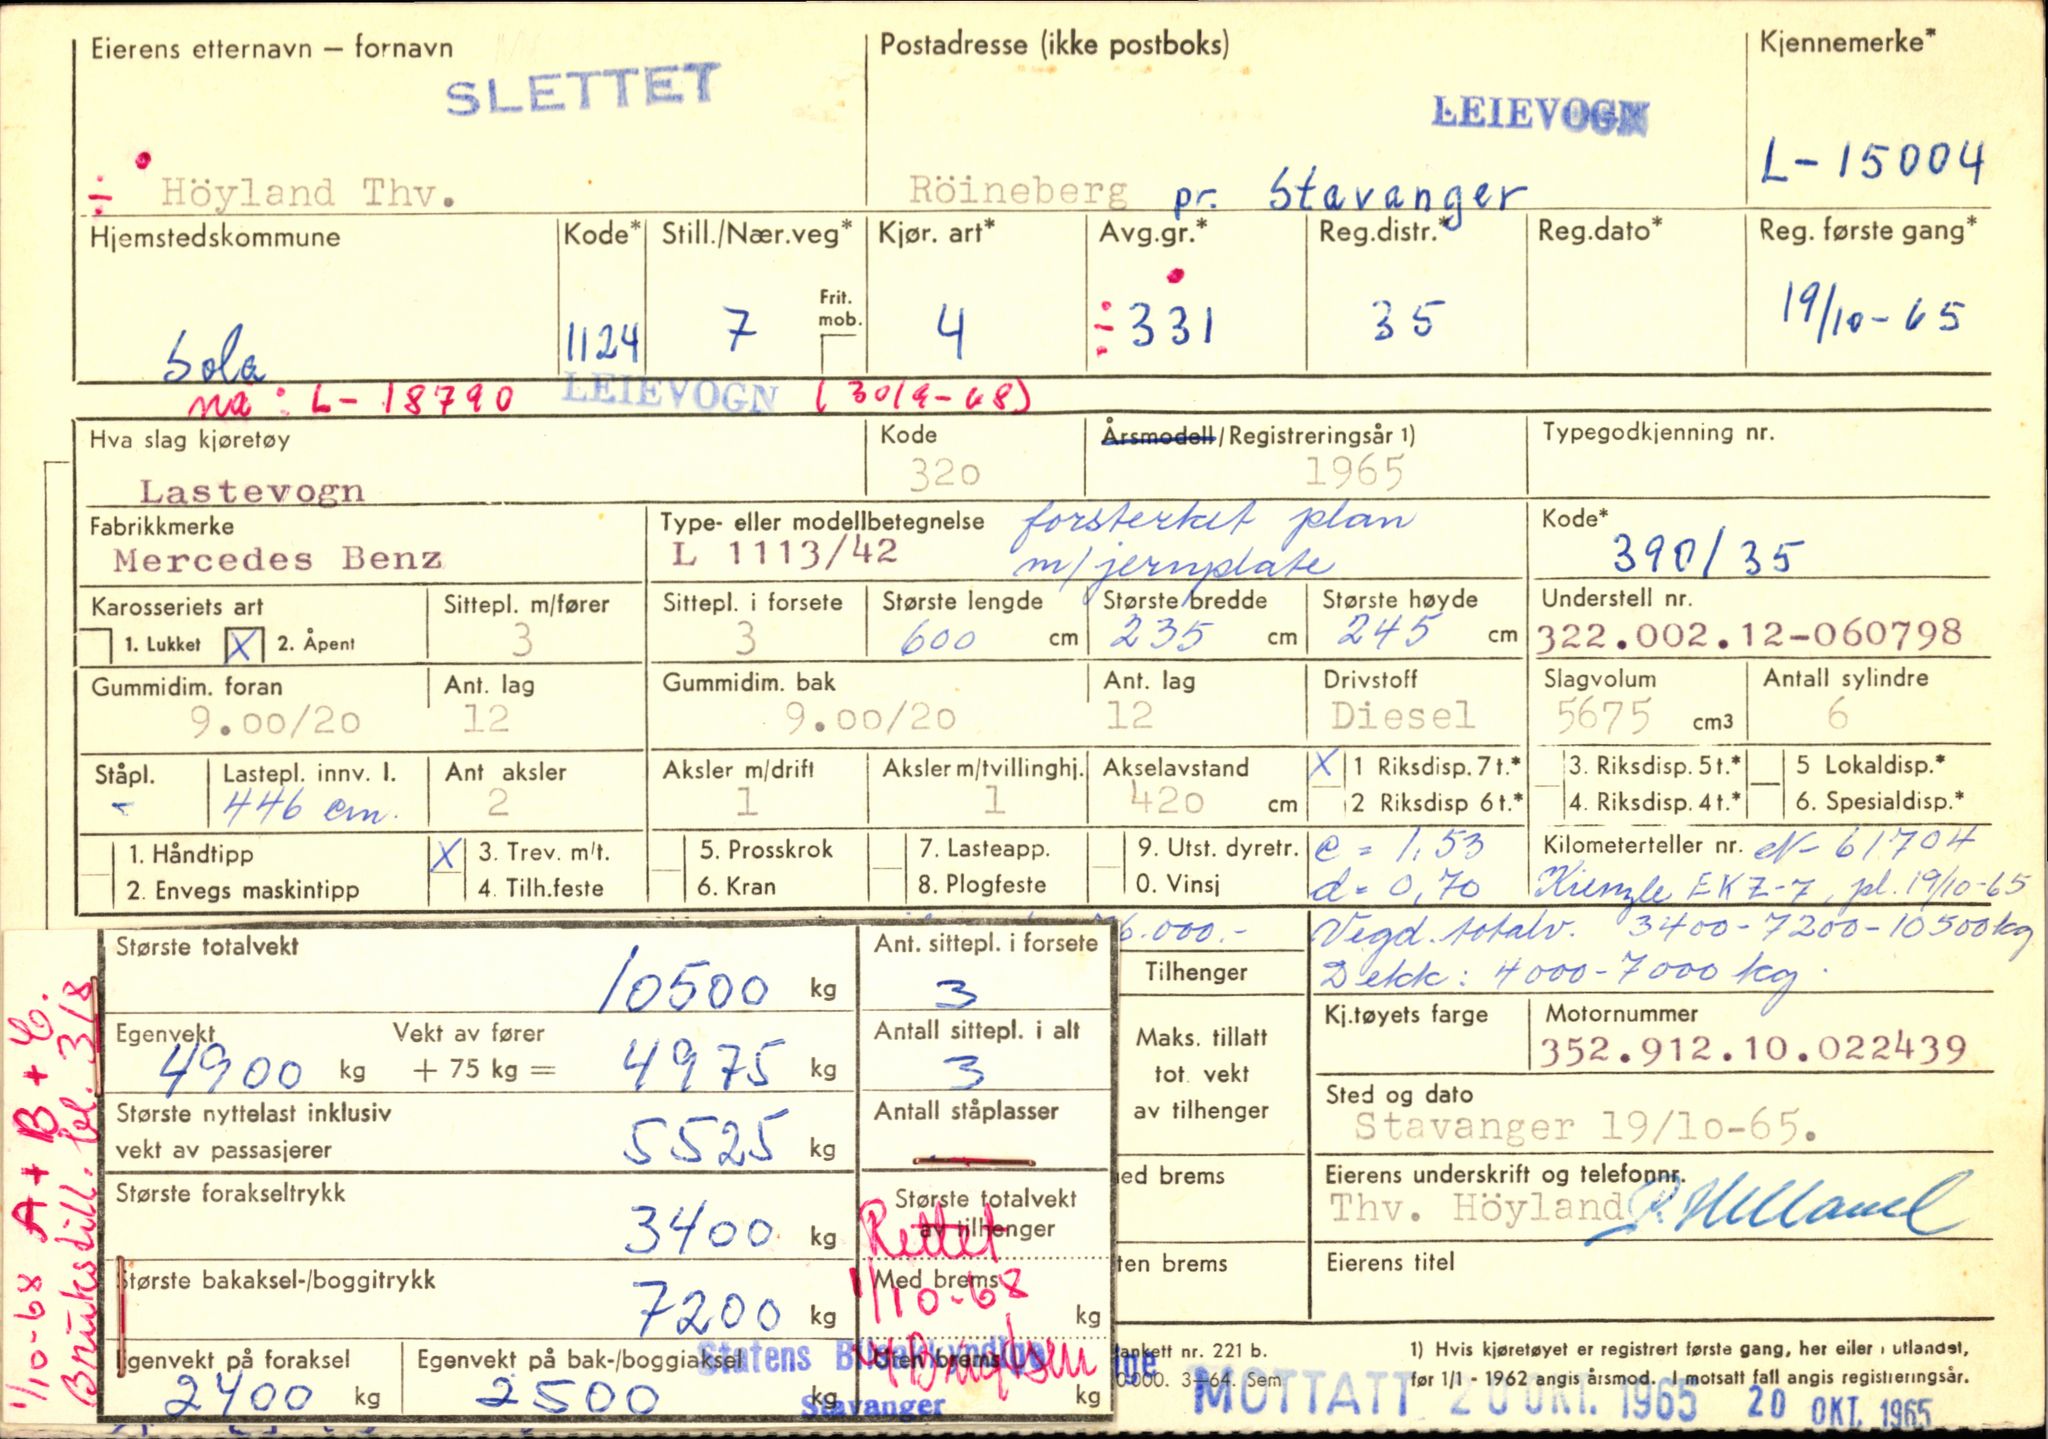 Eierens etternavn — fornavn
SLETTET
÷ Höyland Thv.
Postadresse (ikke postboks)
LEIEVOGN
Röineberg pr. Stavanger
Kjennemerke*
L-15004
Hjemstedskommune
Sola
Kode*
1124
Still./Nær.veg*
7
Frit. mob.
Kjør. art*
4
Avg.gr.*
÷ 331
Reg.distr.*
35
Reg.dato*
Reg. første gang*
19/10-65
nå: L-18790 LEIEVOGN (30/9-68)
Hva slag kjøretøy
Lastevogn
Kode
320
Årsmodell/Registreringsår 1)
1965
Typegodkjenning nr.
Fabrikkmerke
Mercedes Benz
Type- eller modellbetegnelse
L 1113/42
forsterket plan
m/jernplate
Kode*
390/35
Karosseriets art
1. Lukket X 2. Åpent
Sittepl. m/fører
3
Sittepl. i forsete
3
Største lengde
600 cm
Største bredde
235 cm
Største høyde
245 cm
Understell nr.
322.002.12-060798
Gummidim. foran
9.00/20
Ant. lag
12
Gummidim. bak
9.00/20
Ant. lag
12
Drivstoff
Diesel
Slagvolum
5675 cm3
Antall sylindre
6
Ståpl.
-
Lastepl. innv. l.
446 cm.
Ant aksler
2
Aksler m/drift
1
Aksler m/tvillinghj.
1
Akselavstand
420 cm
X 1 Riksdisp. 7 t.*
2 Riksdisp 6 t.*
3. Riksdisp. 5 t.*
4. Riksdisp. 4 t.*
5 Lokaldisp.*
6. Spesialdisp.*
1. Håndtipp
2. Envegs maskintipp
X 3. Trev. m/t.
4. Tilh.feste
5. Prosskrok
6. Kran
7. Lasteapp.
8. Plogfeste
9. Utst. dyretr.
0. Vinsj
c = 1,53
d = 0,70
Kilometerteller nr. N-61704
Kienzle EKZ-7, pl. 19/10-65
6.000.-
Vegd. totalv. 3400-7200-10500kg
Dekk: 4000-7000 kg.
1/10-68 A + B + C.
Bruksdill. bl. 3/8
Største totalvekt
10500 kg
Ant. sittepl. i forsete
3
Egenvekt
4900 kg
Vekt av fører
+ 75 kg = 4975 kg
Antall sittepl. i alt
3
Største nyttelast inklusiv
vekt av passasjerer
5525 kg
Antall ståplasser
—
Største forakseltrykk
3400 kg
Største totalvekt
av tilhenger
Rettet
1/10-68
Største bakaksel-/boggitrykk
7200 kg
Med brems
kg
Egenvekt på foraksel
2400 kg
Egenvekt på bak-/boggiaksel
2500 kg
Uten brems
kg
Statens Bilsakkyndige
Stavanger
Tilhenger
Maks. tillatt
tot. vekt
av tilhenger
ed brems
ten brems
Kj.tøyets farge
Motornummer
352.912.10.022439
Sted og dato
Stavanger 19/10-65.
Eierens underskrift og telefonnr.
Thv. Höyland
Eierens titel
lankett nr. 221 b.
0000. 3—64. Sem
1) Hvis kjøretøyet er registrert første gang, her eller i utlandet,
før 1/1 - 1962 angis årsmod. I motsatt fall angis registreringsår.
MOTTATT 20 OKT. 1965 20 OKT. 1965